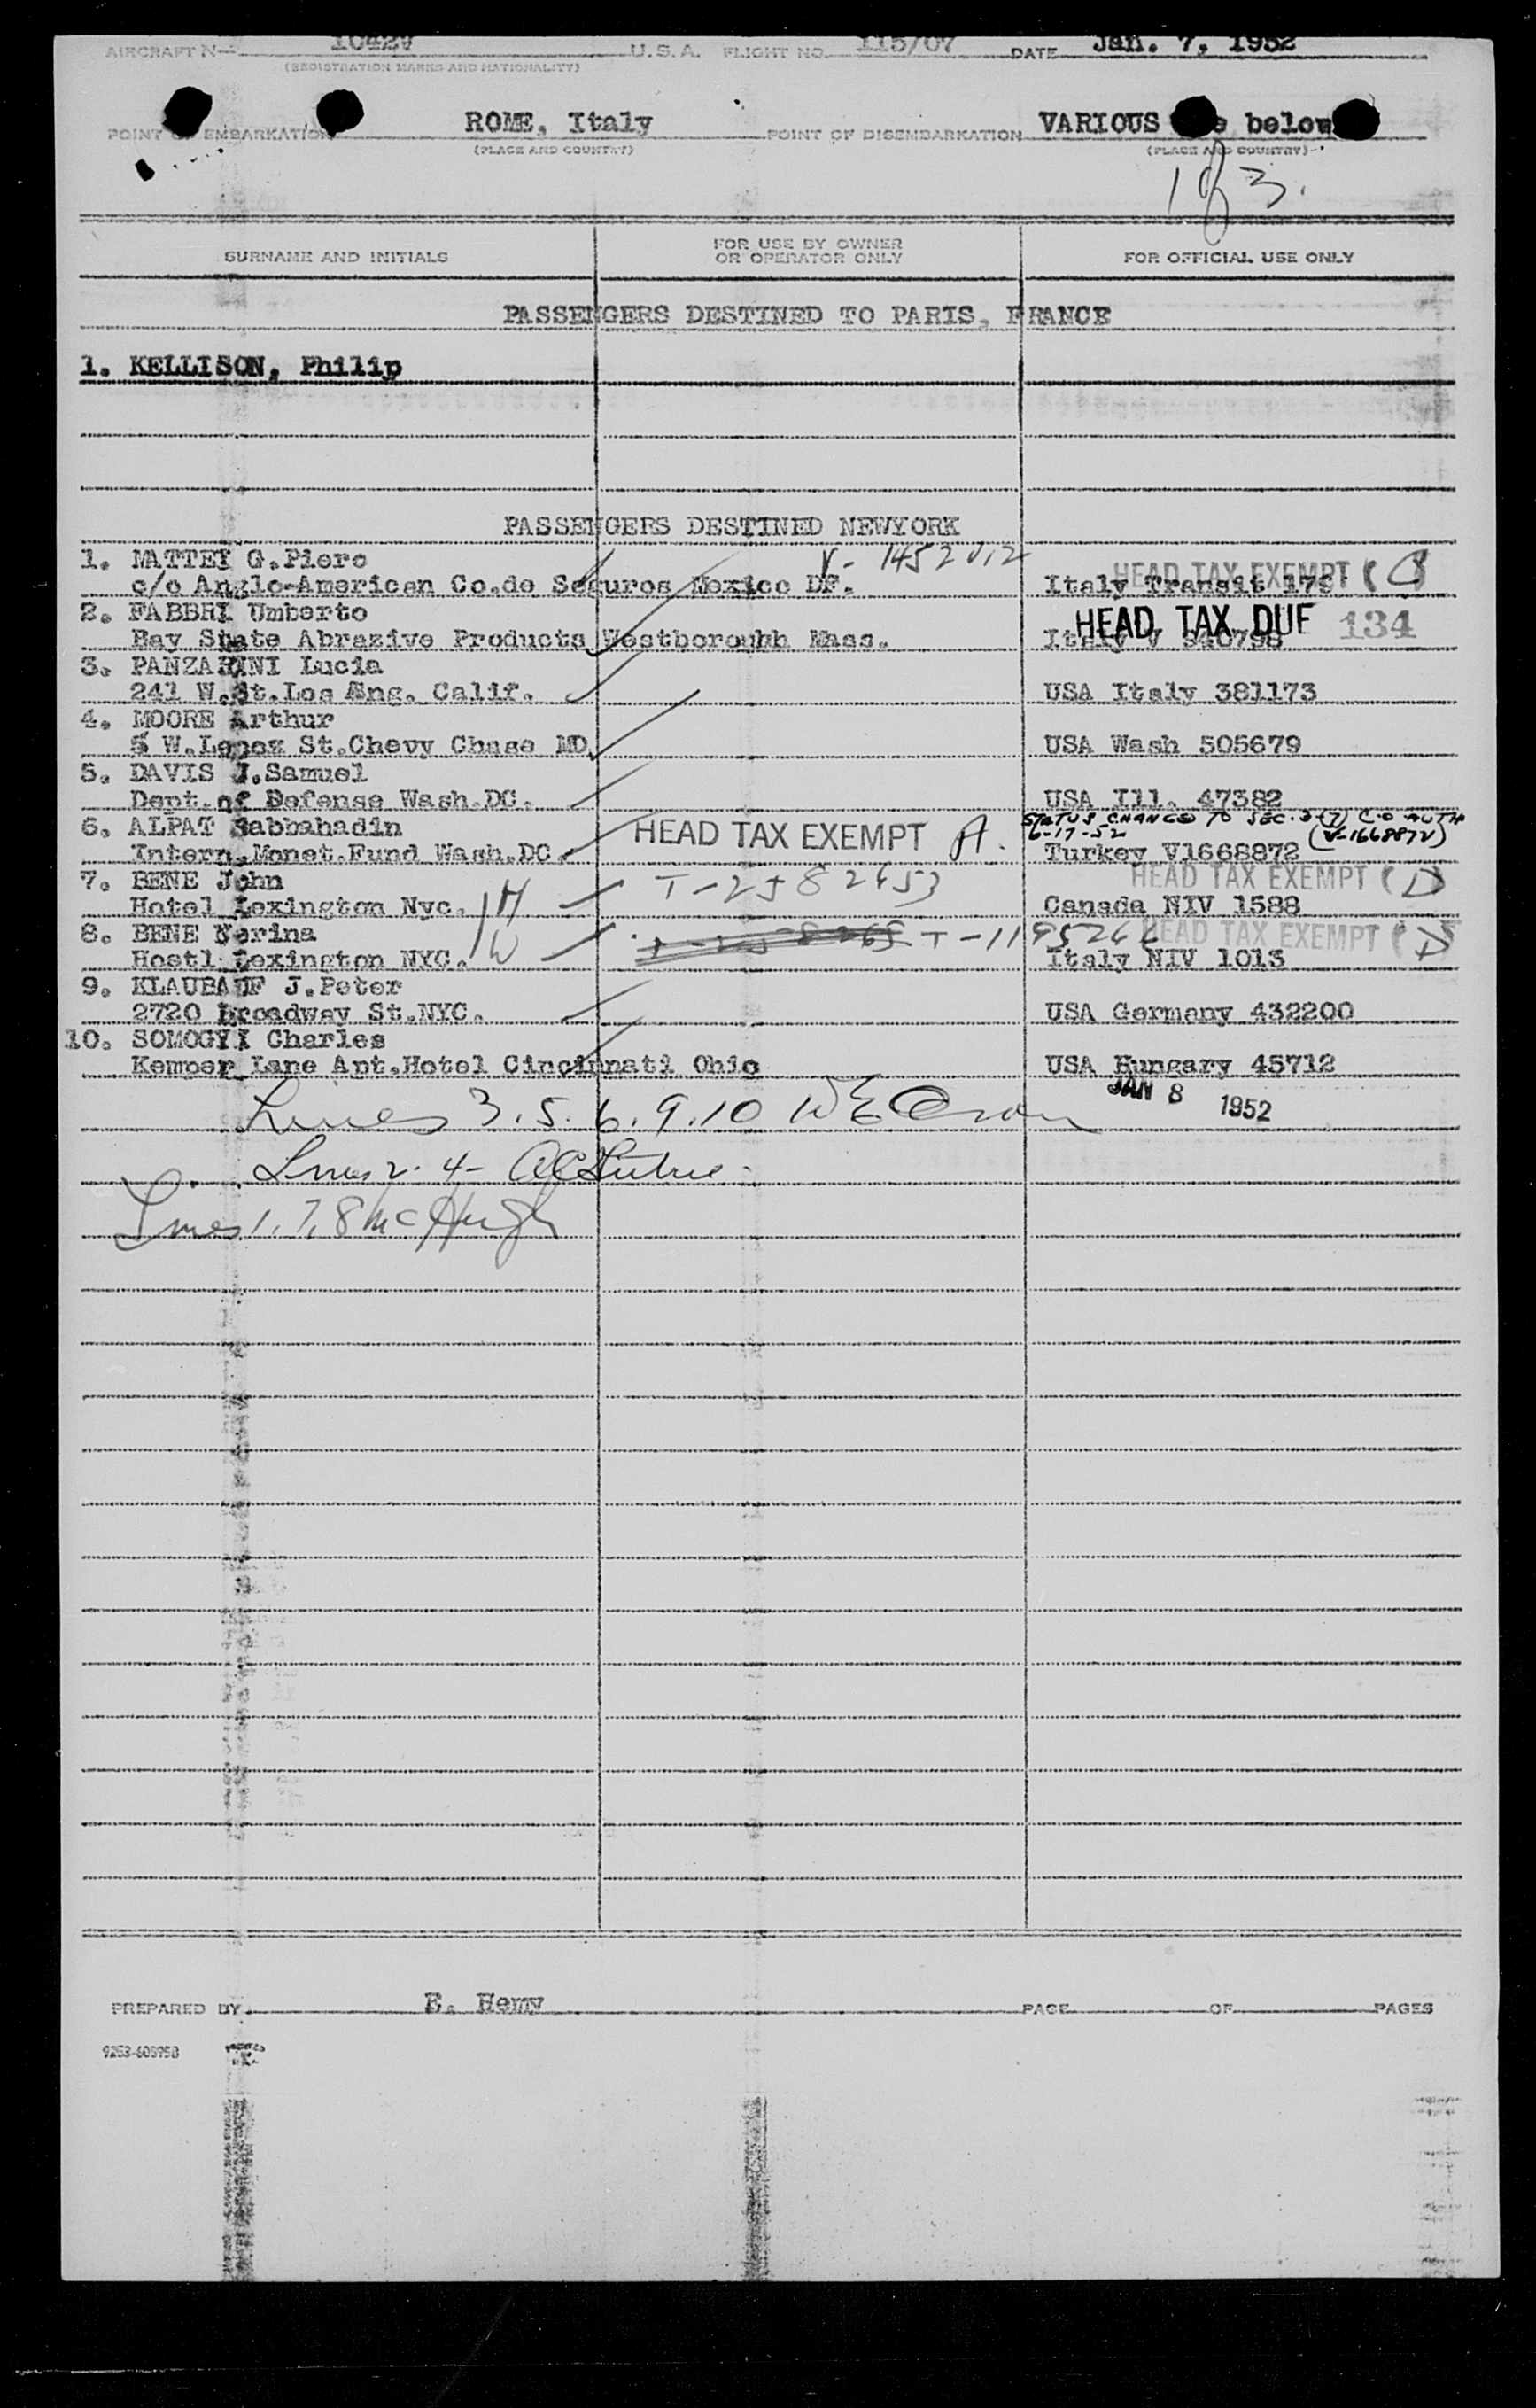 AIRCRAFT No 1042V U.S.A. FLIGHT NO. 115/07 DATE Jan. 7, 1952
(REGISTRATION MARKS AND NATIONALITY)
POINT OF EMBARKATION ROME, Italy POINT OF DISEMBARKATION VARIOUS below
(PLACE AND COUNTRY) (PLACE AND COUNTRY)
1 of 3.
SURNAME AND INITIALS FOR USE BY OWNER OR OPERATOR ONLY FOR OFFICIAL USE ONLY
PASSENGERS DESTINED TO PARIS, FRANCE
1. KELLISON, Philip
PASSENGERS DESTINED NEWYORK
1. MATTEI G.Piero V-
c/o Anglo-American Co.de Seguros Mexico DF. Italy Transit 179 HEAD TAX EXEMPT (C)
2. FABBRI Umberto HEAD TAX DUE 134
Bay State Abrazive Products Westboroubh Mass. Italy V 940798
3. PANZARINI Lucia
241 W.St.Los Ang. Calif. USA Italy 381173
4. MOORE Arthur
5 W.Lenox St.Chevy Chase MD. USA Wash 505679
5. DAVIS J.Samuel
Dept.of Defense Wash.DC. USA Ill. 47382
6. ALPAT Sabbahadin HEAD TAX EXEMPT A. STATUS CHANGED TO SEC. 3(7) C.O AUTH
6-17-52 (V-1668872)
Intern.Monet.Fund Wash.DC. Turkey V1668872
7. BENE John T-2582653 HEAD TAX EXEMPT (D)
Hotel Lexington Nyc. H Canada NIV 1588
8. BENE Nerina HEAD TAX EXEMPT (D)
Hostl Lexington NYC. W Italy NIV 1013
9. KLAUBAUF J.Peter
2720 Broadway St.NYC. USA Germany 432200
10. SOMOGYI Charles
Kemper Lane Apt.Hotel Cincinnati Ohio USA Hungary 45712
JAN 8 1952
Lines 3.5.6.9.10
Lines 2.4-
Lines 1,7,8 McHugh
PREPARED BY E. Hemy PAGE OF PAGES